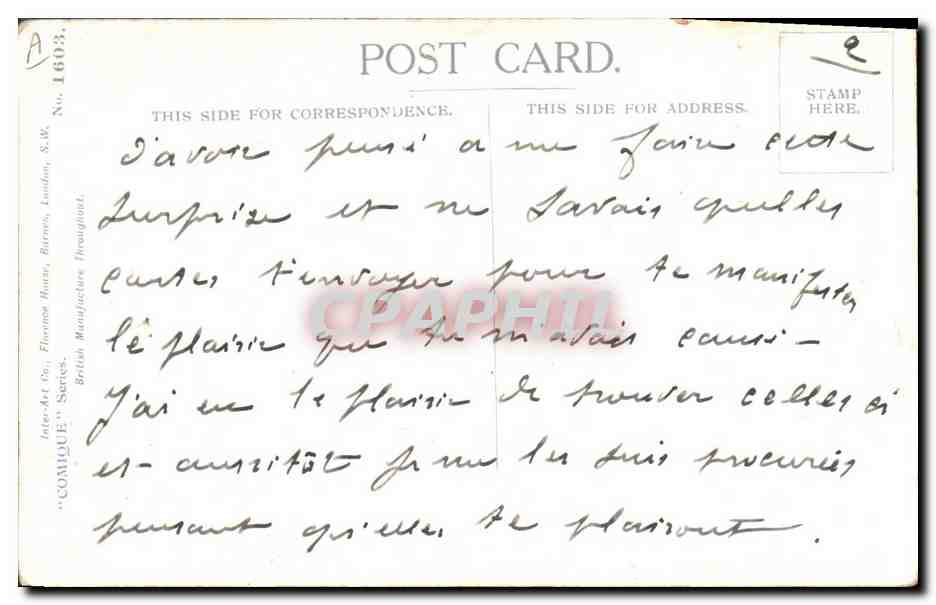 A
2
POST CARD.
THIS SIDE FOR CORRESPONDENCE.
THIS SIDE FOR ADDRESS.
STAMP
HERE.
d'avoir pensé a me faire cette
surprise et ne savais quelles
cartes t'envoyer pour te manifester
le plaisir que tu m'avais causé -
J'ai eu le plaisir de trouver celles ci
et aussitôt je me les suis procurées
pensant qu'elles te plairont.
No. 1603.
Inter-Art Co., Florence House, Barnes, London, S.W.
"COMIQUE" Series.
British Manufacture Throughout.
CPAPHIL